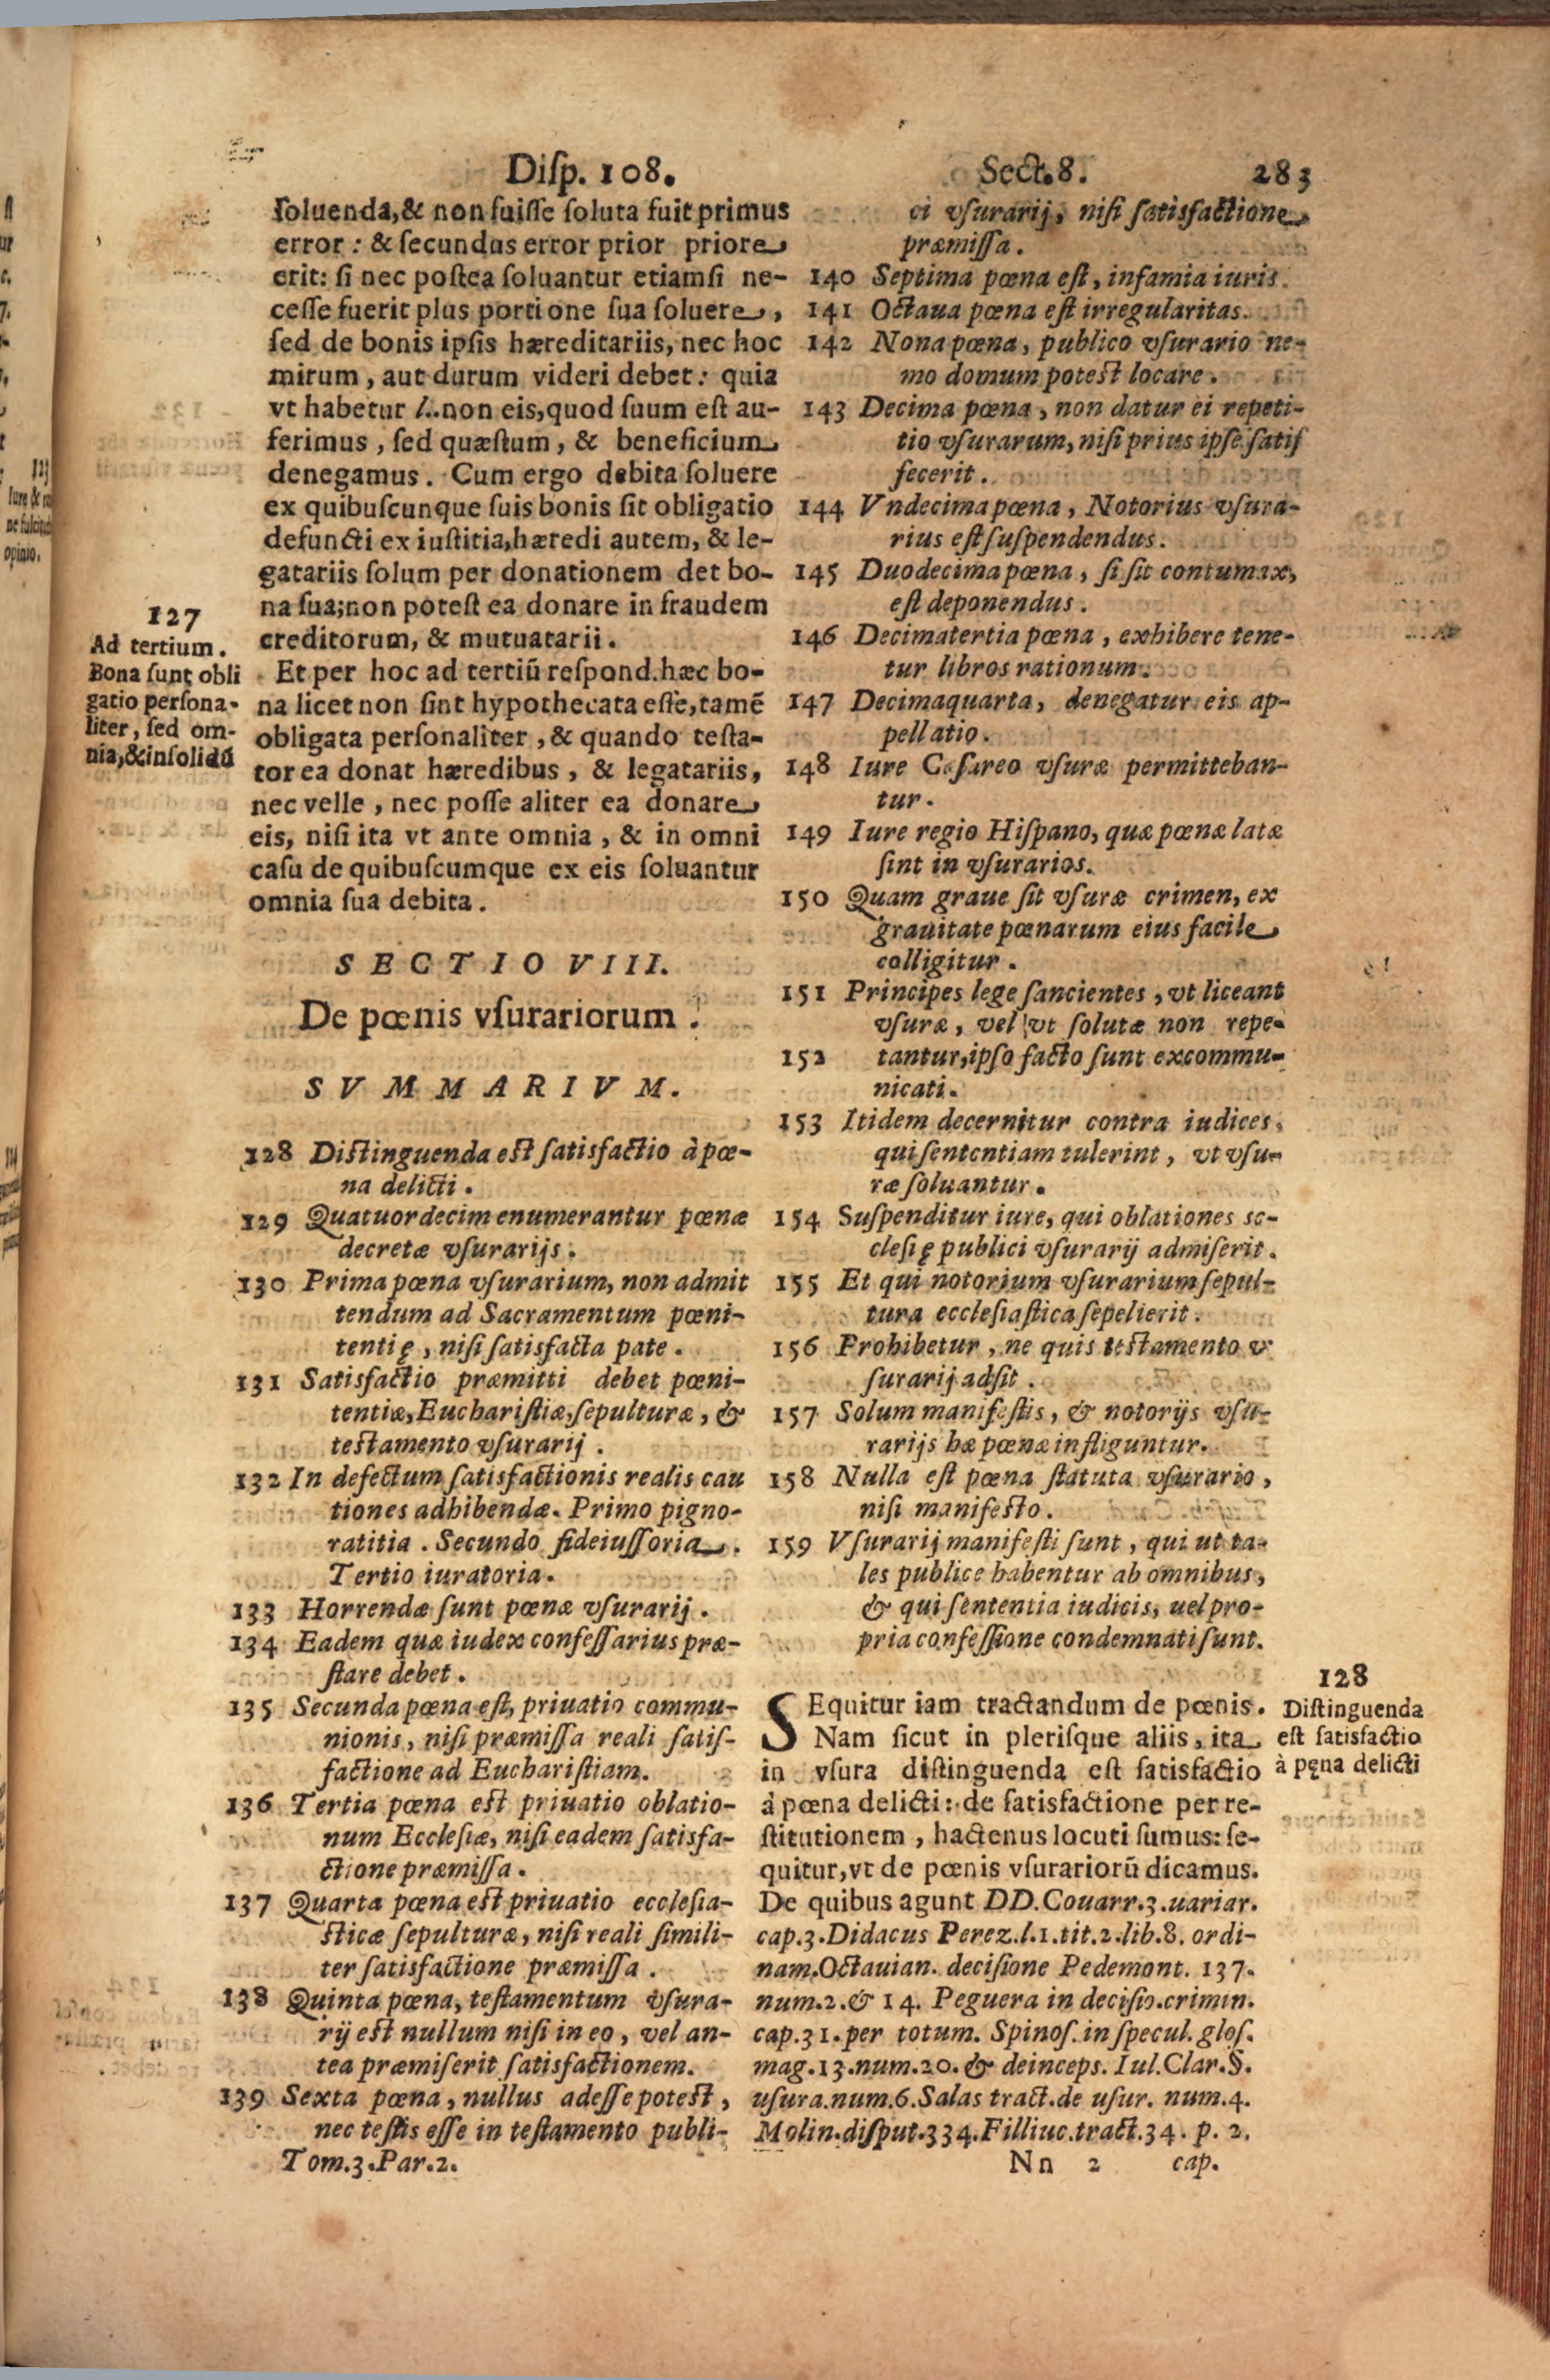 Diſp. 108. Sect. 8. 283
ſoluenda, & non fuiſſe ſoluta fuit primus
error: & ſecundus error prior priore
erit: ſi nec poſtea ſoluantur etiamſi ne-
ceſſe fuerit plus portione ſua ſoluere,
ſed de bonis ipſis hæreditariis, nec hoc
mirum, aut durum videri debet: quia
vt habetur l..non eis, quod ſuum eſt au-
ferimus, ſed quæſtum, & beneficium
denegamus. Cum ergo debita ſoluere
ex quibuſcunque ſuis bonis ſit obligatio
defuncti ex iuſtitia, hæredi autem, & le-
gatariis ſolum per donationem det bo-
na ſua; non poteſt ea donare in fraudem
creditorum, & mutuatarii.
127
Ad tertium.
Bona ſunt obli
gatio perſona-
liter, ſed om-
nia, & inſolidũ
Et per hoc ad tertiũ reſpond. hæc bo-
na licet non ſint hypothecata eſſe, tamẽ
obligata perſonaliter, & quando teſta-
tor ea donat hæredibus, & legatariis,
nec velle, nec poſſe aliter ea donare
eis, niſi ita vt ante omnia, & in omni
caſu de quibuſcumque ex eis ſoluantur
omnia ſua debita.
SECTIO VIII.
De pœnis vſurariorum.
SVMMARIVM.
128 Diſtinguenda eſt ſatisfactio à pœ-
na delicti.
129 Quatuordecim enumerantur pœnæ
decretæ vſurarijs.
130 Prima pœna vſurarium, non admit
tendum ad Sacramentum pœni-
tentię, niſi ſatisfacta pate.
131 Satisfactio præmitti debet pœni-
tentiæ, Euchariſtiæ, ſepulturæ, &
teſtamento vſurarij.
132 In defectum ſatisfactionis realis cau
tiones adhibendæ. Primo pigno-
ratitia. Secundo fideiuſſoria.
Tertio iuratoria.
133 Horrendæ ſunt pœnæ vſurarij.
134 Eadem quæ iudex confeſſarius præ-
ſtare debet.
135 Secunda pœna eſt, priuatio commu-
nionis, niſi præmiſſa reali ſatiſ-
factione ad Euchariſtiam.
136 Tertia pœna eſt priuatio oblatio-
num Eccleſiæ, niſi eadem ſatisfa-
ctione præmiſſa.
137 Quarta pœna eſt priuatio eccleſia-
ſticæ ſepulturæ, niſi reali ſimili-
ter ſatisfactione præmiſſa.
138 Quinta pœna, teſtamentum vſura-
rij eſt nullum niſi in eo, vel an-
tea præmiſerit ſatisfactionem.
139 Sexta pœna, nullus adeſſe poteſt,
nec teſtis eſſe in teſtamento publi-
Tom. 3. Par. 2.
ci vſurarij, niſi ſatisfactione
præmiſſa.
140 Septima pœna eſt, infamia iuris.
141 Octaua pœna eſt irregularitas.
142 Nona pœna, publico vſurario ne-
mo domum poteſt locare.
143 Decima pœna, non datur ei repeti-
tio vſurarum, niſi prius ipſe ſatiſ
fecerit.
144 Vndecima pœna, Notorius vſura-
rius eſt ſuſpendendus.
145 Duodecima pœna, ſi ſit contumax,
eſt deponendus.
146 Decimatertia pœna, exhibere tene-
tur libros rationum.
147 Decimaquarta, denegatur eis ap-
pellatio.
148 Iure Cæſareo vſuræ permitteban-
tur.
149 Iure regio Hiſpano, quæ pœnæ latæ
ſint in vſurarios.
150 Quam graue ſit vſuræ crimen, ex
grauitate pœnarum eius facile
colligitur.
151 Principes lege ſancientes, vt liceant
vſuræ, vel vt ſolutæ non repe-
152 tantur, ipſo facto ſunt excommu-
nicati.
153 Itidem decernitur contra iudices,
qui ſententiam tulerint, vt vſu-
ræ ſoluantur.
154 Suſpenditur iure, qui oblationes ec-
cleſię publici vſurarij admiſerit.
155 Et qui notorium vſurarium ſepul-
tura eccleſiaſtica ſepelierit.
156 Prohibetur, ne quis teſtamento v
ſurarij adſit.
157 Solum manifeſtis, & notorijs vſu-
rarijs hæ pœnæ infliguntur.
158 Nulla eſt pœna ſtatuta vſurario,
niſi manifeſto.
159 Vſurarij manifeſti ſunt, qui ut ta-
les publice habentur ab omnibus,
& qui ſententia iudicis, uel pro-
pria confeſſione condemnati ſunt.
128
Diſtinguenda
eſt ſatisfactio
à pęna delicti
SEquitur iam tractandum de pœnis.
Nam ſicut in pleriſque aliis, ita
in vſura diſtinguenda eſt ſatisfactio
à pœna delicti: de ſatisfactione per re-
ſtitutionem, hactenus locuti ſumus: ſe-
quitur, vt de pœnis vſurariorũ dicamus.
De quibus agunt DD. Couarr. 3. uariar.
cap. 3. Didacus Perez. l. 1. tit. 2. lib. 8. ordi-
nam. Octauian. deciſione Pedemont. 137.
num. 2. & 14. Peguera in deciſio. crimin.
cap. 31. per totum. Spinoſ. in ſpecul. gloſ.
mag. 13. num. 20. & deinceps. Iul. Clar. §.
uſura. num. 6. Salas tract. de uſur. num. 4.
Molin. diſput. 334. Filliuc. tract. 34. p. 2.
Nn 2 cap.